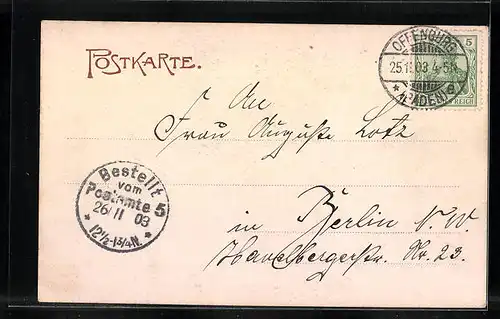 POSTKARTE.
OFFENBURG
25.11.03 4-5N
* (BADEN) *
5
REICH
An
Frau Auguste Lotz
Bestellt
vom
Postamte 5
26/11 03
* 12½-1¾N. *
in Berlin N.W.
Havelbergerstr. Nr. 23.